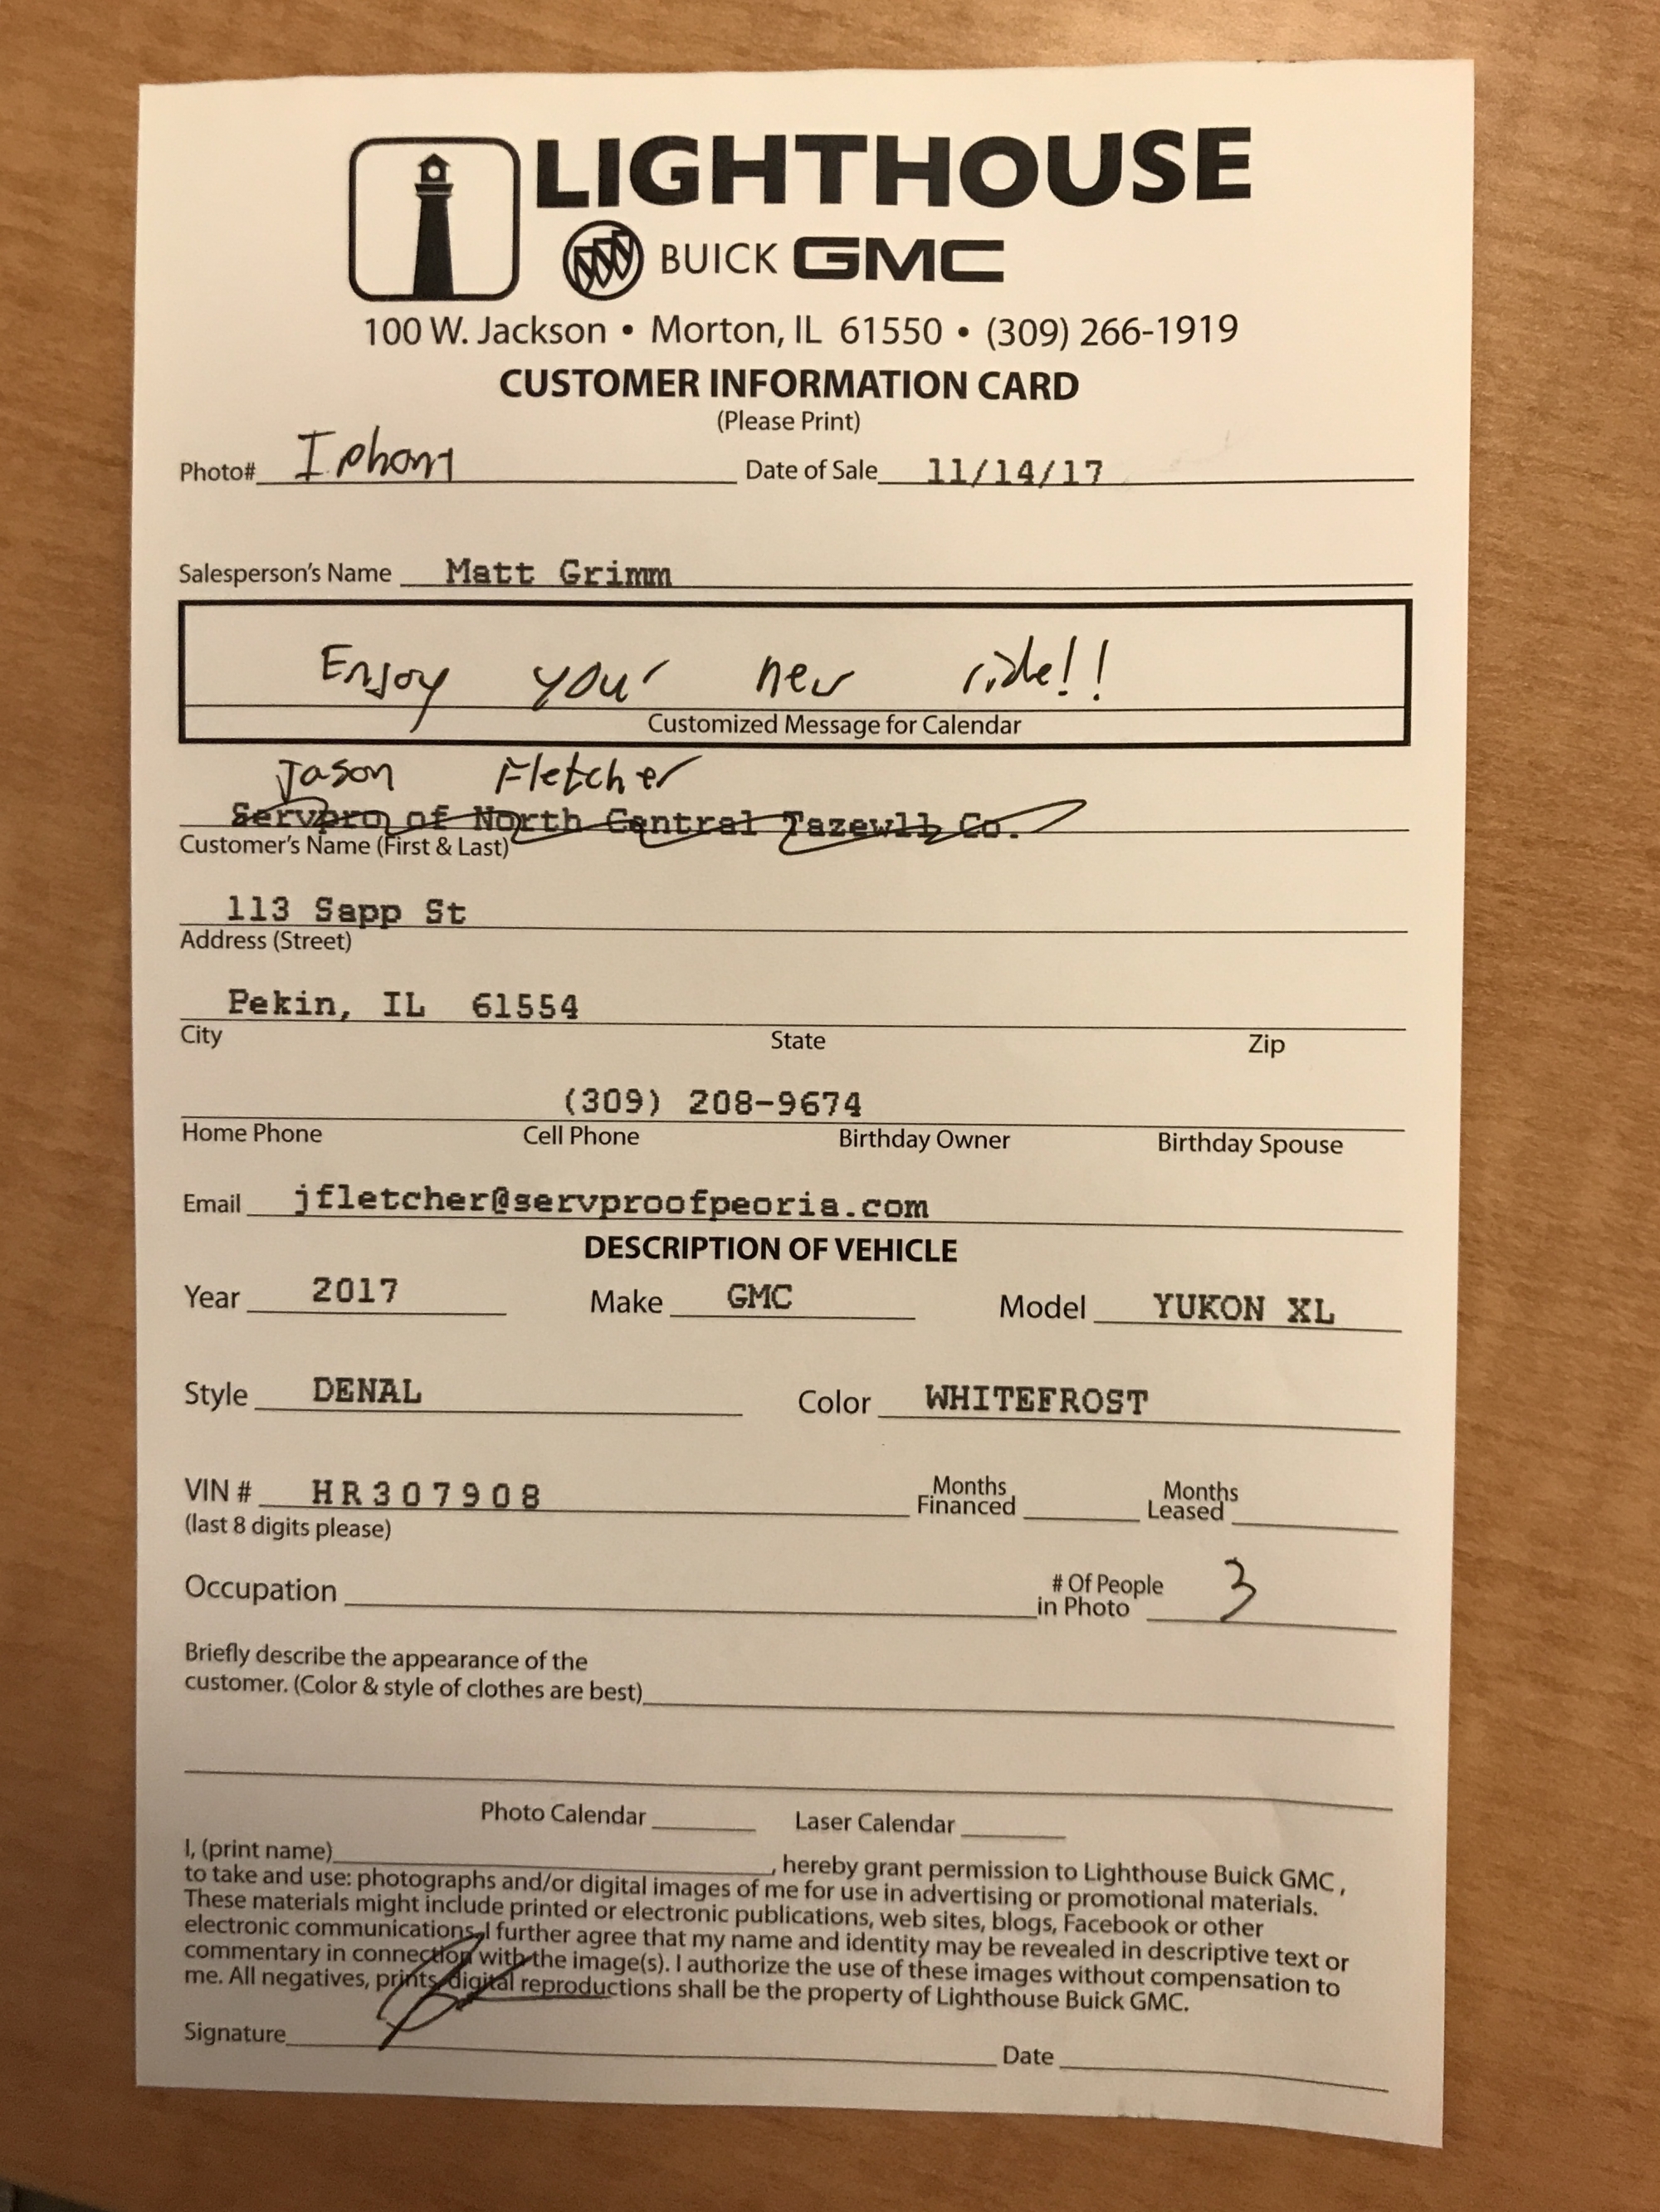 LIGHTHOUSE
BUICK GMC
100 W. Jackson • Morton, IL 61550 • (309) 266-1919
CUSTOMER INFORMATION CARD
(Please Print)
Photo# Iphone Date of Sale 11/14/17
Salesperson's Name Matt Grimm
Enjoy your new ride!!
Customized Message for Calendar
Jason Fletcher
Servpro of North Central Tazewll Co.
Customer's Name (First & Last)
113 Sapp St
Address (Street)
Pekin, IL 61554
City State Zip
(309) 208-9674
Home Phone Cell Phone Birthday Owner Birthday Spouse
Email jfletcher@servproofpeoria.com
DESCRIPTION OF VEHICLE
Year 2017 Make GMC Model YUKON XL
Style DENAL Color WHITEFROST
VIN # HR307908 Months Financed Months Leased
(last 8 digits please)
Occupation # Of People in Photo 3
Briefly describe the appearance of the
customer. (Color & style of clothes are best)
Photo Calendar Laser Calendar
I, (print name) , hereby grant permission to Lighthouse Buick GMC ,
to take and use: photographs and/or digital images of me for use in advertising or promotional materials.
These materials might include printed or electronic publications, web sites, blogs, Facebook or other
electronic communications. I further agree that my name and identity may be revealed in descriptive text or
commentary in connection with the image(s). I authorize the use of these images without compensation to
me. All negatives, prints, digital reproductions shall be the property of Lighthouse Buick GMC.
Signature Date